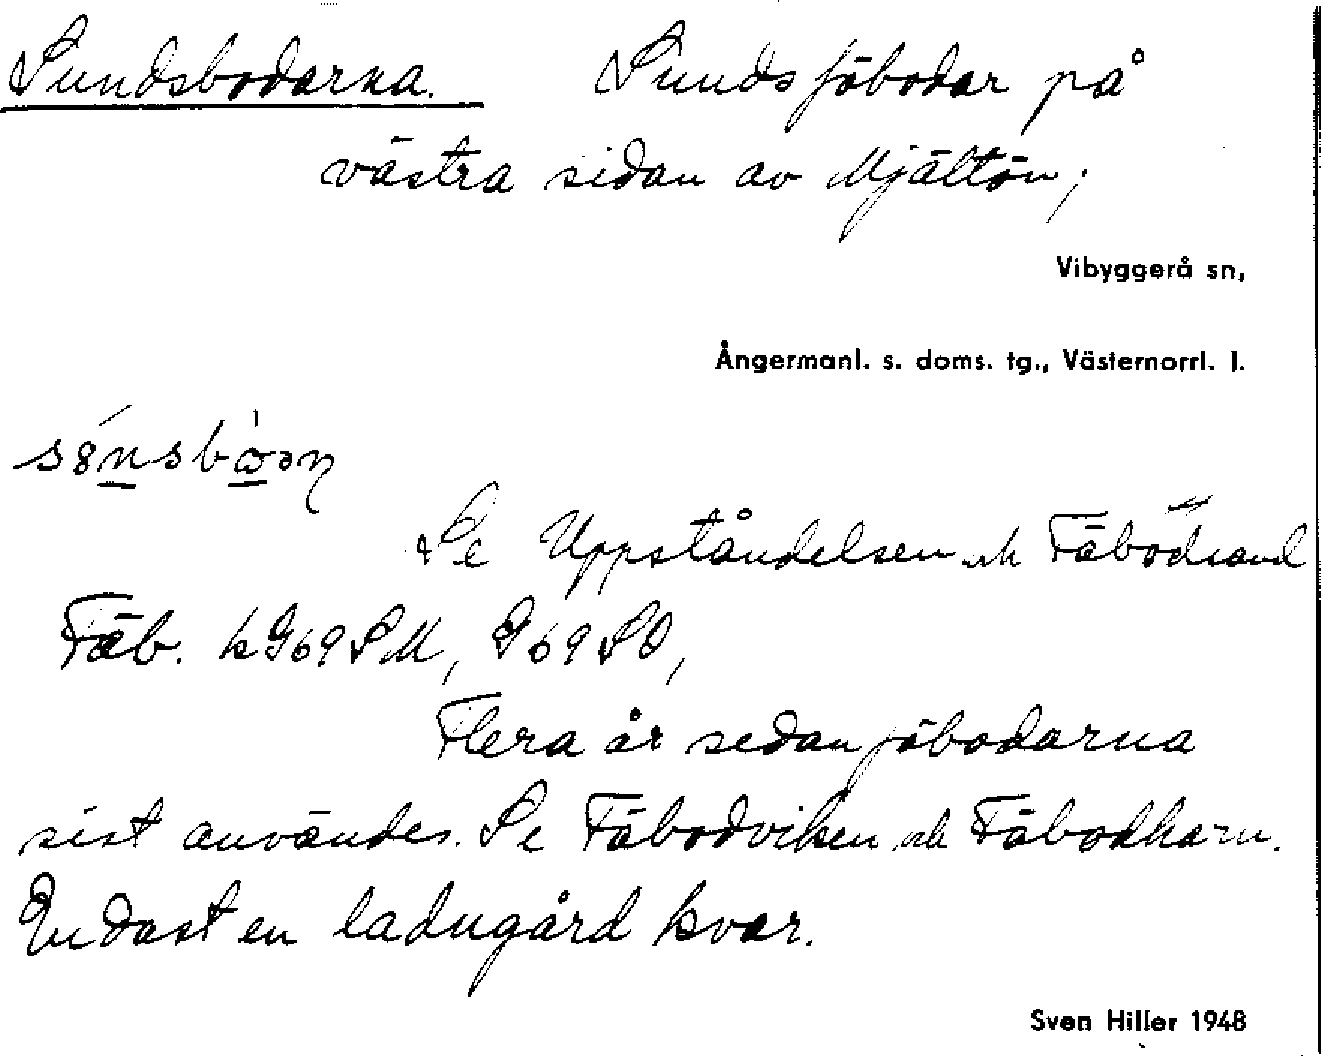 Sundsbodarna. Sunds fäbodar på
västra sidan av Mjältön;
Vibyggerå sn,
Ångermanl. s. doms. tg., Västernorrl. l.
Se Uppståndelsen och Fäbodrand
Fäb. kG69SM, G69SO,
Flera år sedan fäbodarna
sist användes. Se Fäbodviken och Fäbodharn.
Endast en ladugård kvar.
Sven Hiller 1948